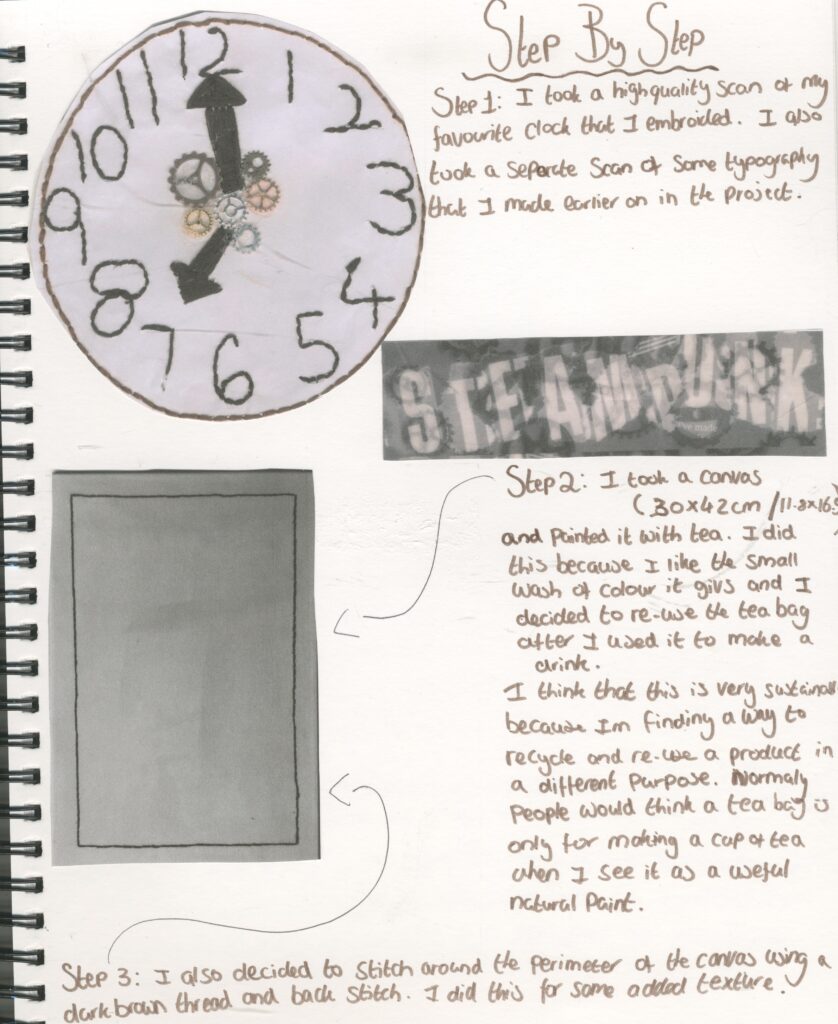 Step By Step
Step 1: I took a high quality scan of my
favourite clock that I embroided. I also
took a seperate scan of some typography
that I made earlier on in the project.
12
1
2
3
4
5
6
7
8
9
10
11
STEAMPUNK
I've made
Step 2: I took a canvas
(30x42cm / 11.8x16.5
and painted it with tea. I did
this because I like the small
wash of colour it givs and I
decided to re-use the tea bag
after I used it to make a
drink.
I think that this is very sustainabl
because Im finding a way to
recycle and re-use a product in
a different purpose. Normaly
people would think a tea bag is
only for making a cup of tea
when I see it as a useful
natural paint.
Step 3: I also decided to stitch around the perimeter of the canvas using a
dark brown thread and back stitch. I did this for some added texture.